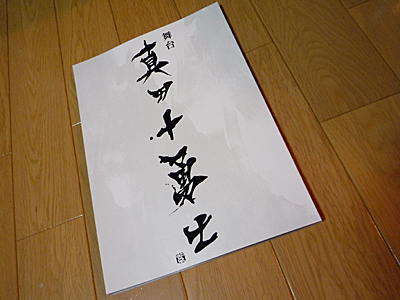 舞台
真田十勇士